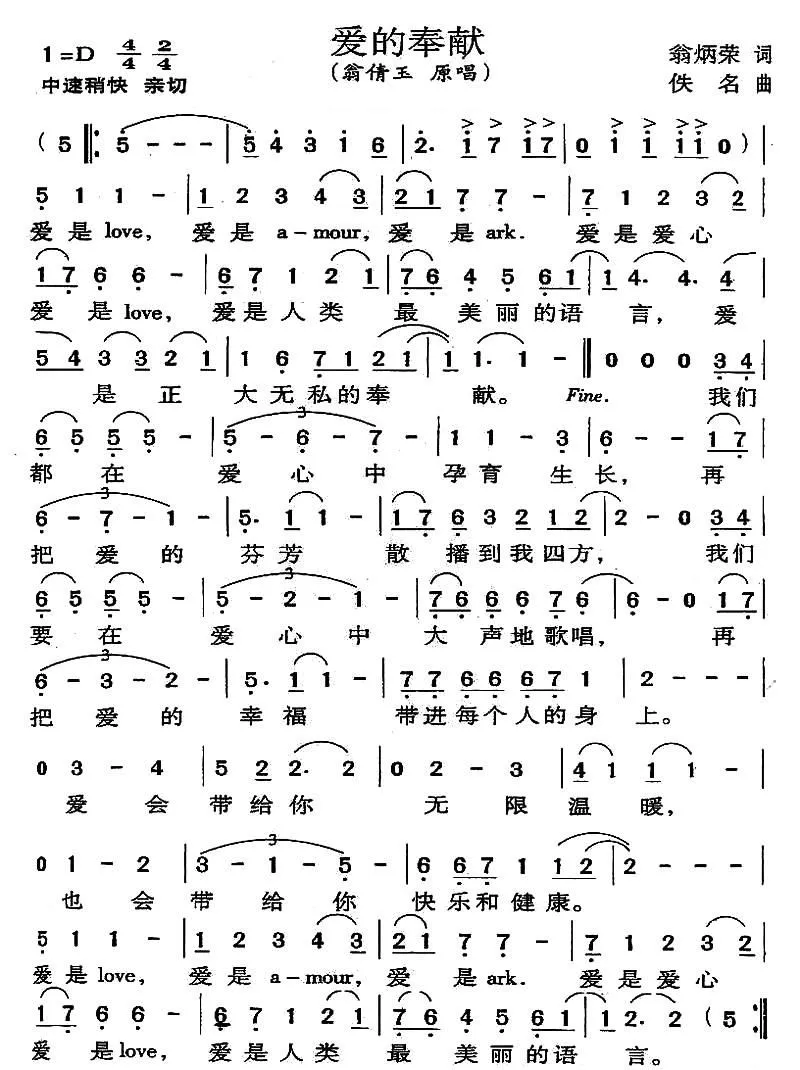 爱的奉献
1=D 4/4 2/4
(翁倩玉 原唱)
翁炳荣 词
中速稍快 亲切
佚名 曲
( 5 |: 5 - - - | 5 4 3 1 6 | 2. 1 7 1 7 | 0 1 1 1 1 0 ) |
5 1 1 - | 1 2 3 4 3 | 2 1 7 7 - | 7 1 2 3 2 |
爱是love, 爱是a-mour, 爱是ark. 爱是爱心
1 7 6 6 - | 6 7 1 2 1 | 7 6 4 5 6 1 | 1 4. 4. 4 |
爱是love, 爱是人类最美丽的语言, 爱
5 4 3 3 2 1 | 1 6 7 1 2 1 | 1 1. 1 - || 0 0 0 3 4 |
是正大无私的奉献。 Fine. 我们
6 5 5 5 - | 5 - 6 - 7 - | 1 1 - 3 | 6 - - 1 7 |
3
都在爱心中孕育生长, 再
6 - 7 - 1 - | 5. 1 1 - | 1 7 6 3 2 1 2 | 2 - 0 3 4 |
3
把爱的芬芳散播到我四方, 我们
6 5 5 5 - | 5 - 2 - 1 - | 7 6 6 6 7 6 | 6 - 0 1 7 |
3
要在爱心中大声地歌唱, 再
6 - 3 - 2 - | 5. 1 1 - | 7 7 6 6 6 7 1 | 2 - - - |
3
把爱的幸福带进每个人的身上。
0 3 - 4 | 5 2 2. 2 | 0 2 - 3 | 4 1 1 1 |
爱会带给你无限温暖,
0 1 - 2 | 3 - 1 - 5 - | 6 6 7 1 1 2 | 2 - - - |
3
也会带给你快乐和健康。
5 1 1 - | 1 2 3 4 3 | 2 1 7 7 - | 7 1 2 3 2 |
爱是love, 爱是a-mour, 爱是ark. 爱是爱心
1 7 6 6 - | 6 7 1 2 1 | 7 6 4 5 6 1 | 1 2. 2 ( 5 :||
爱是love, 爱是人类最美丽的语言。